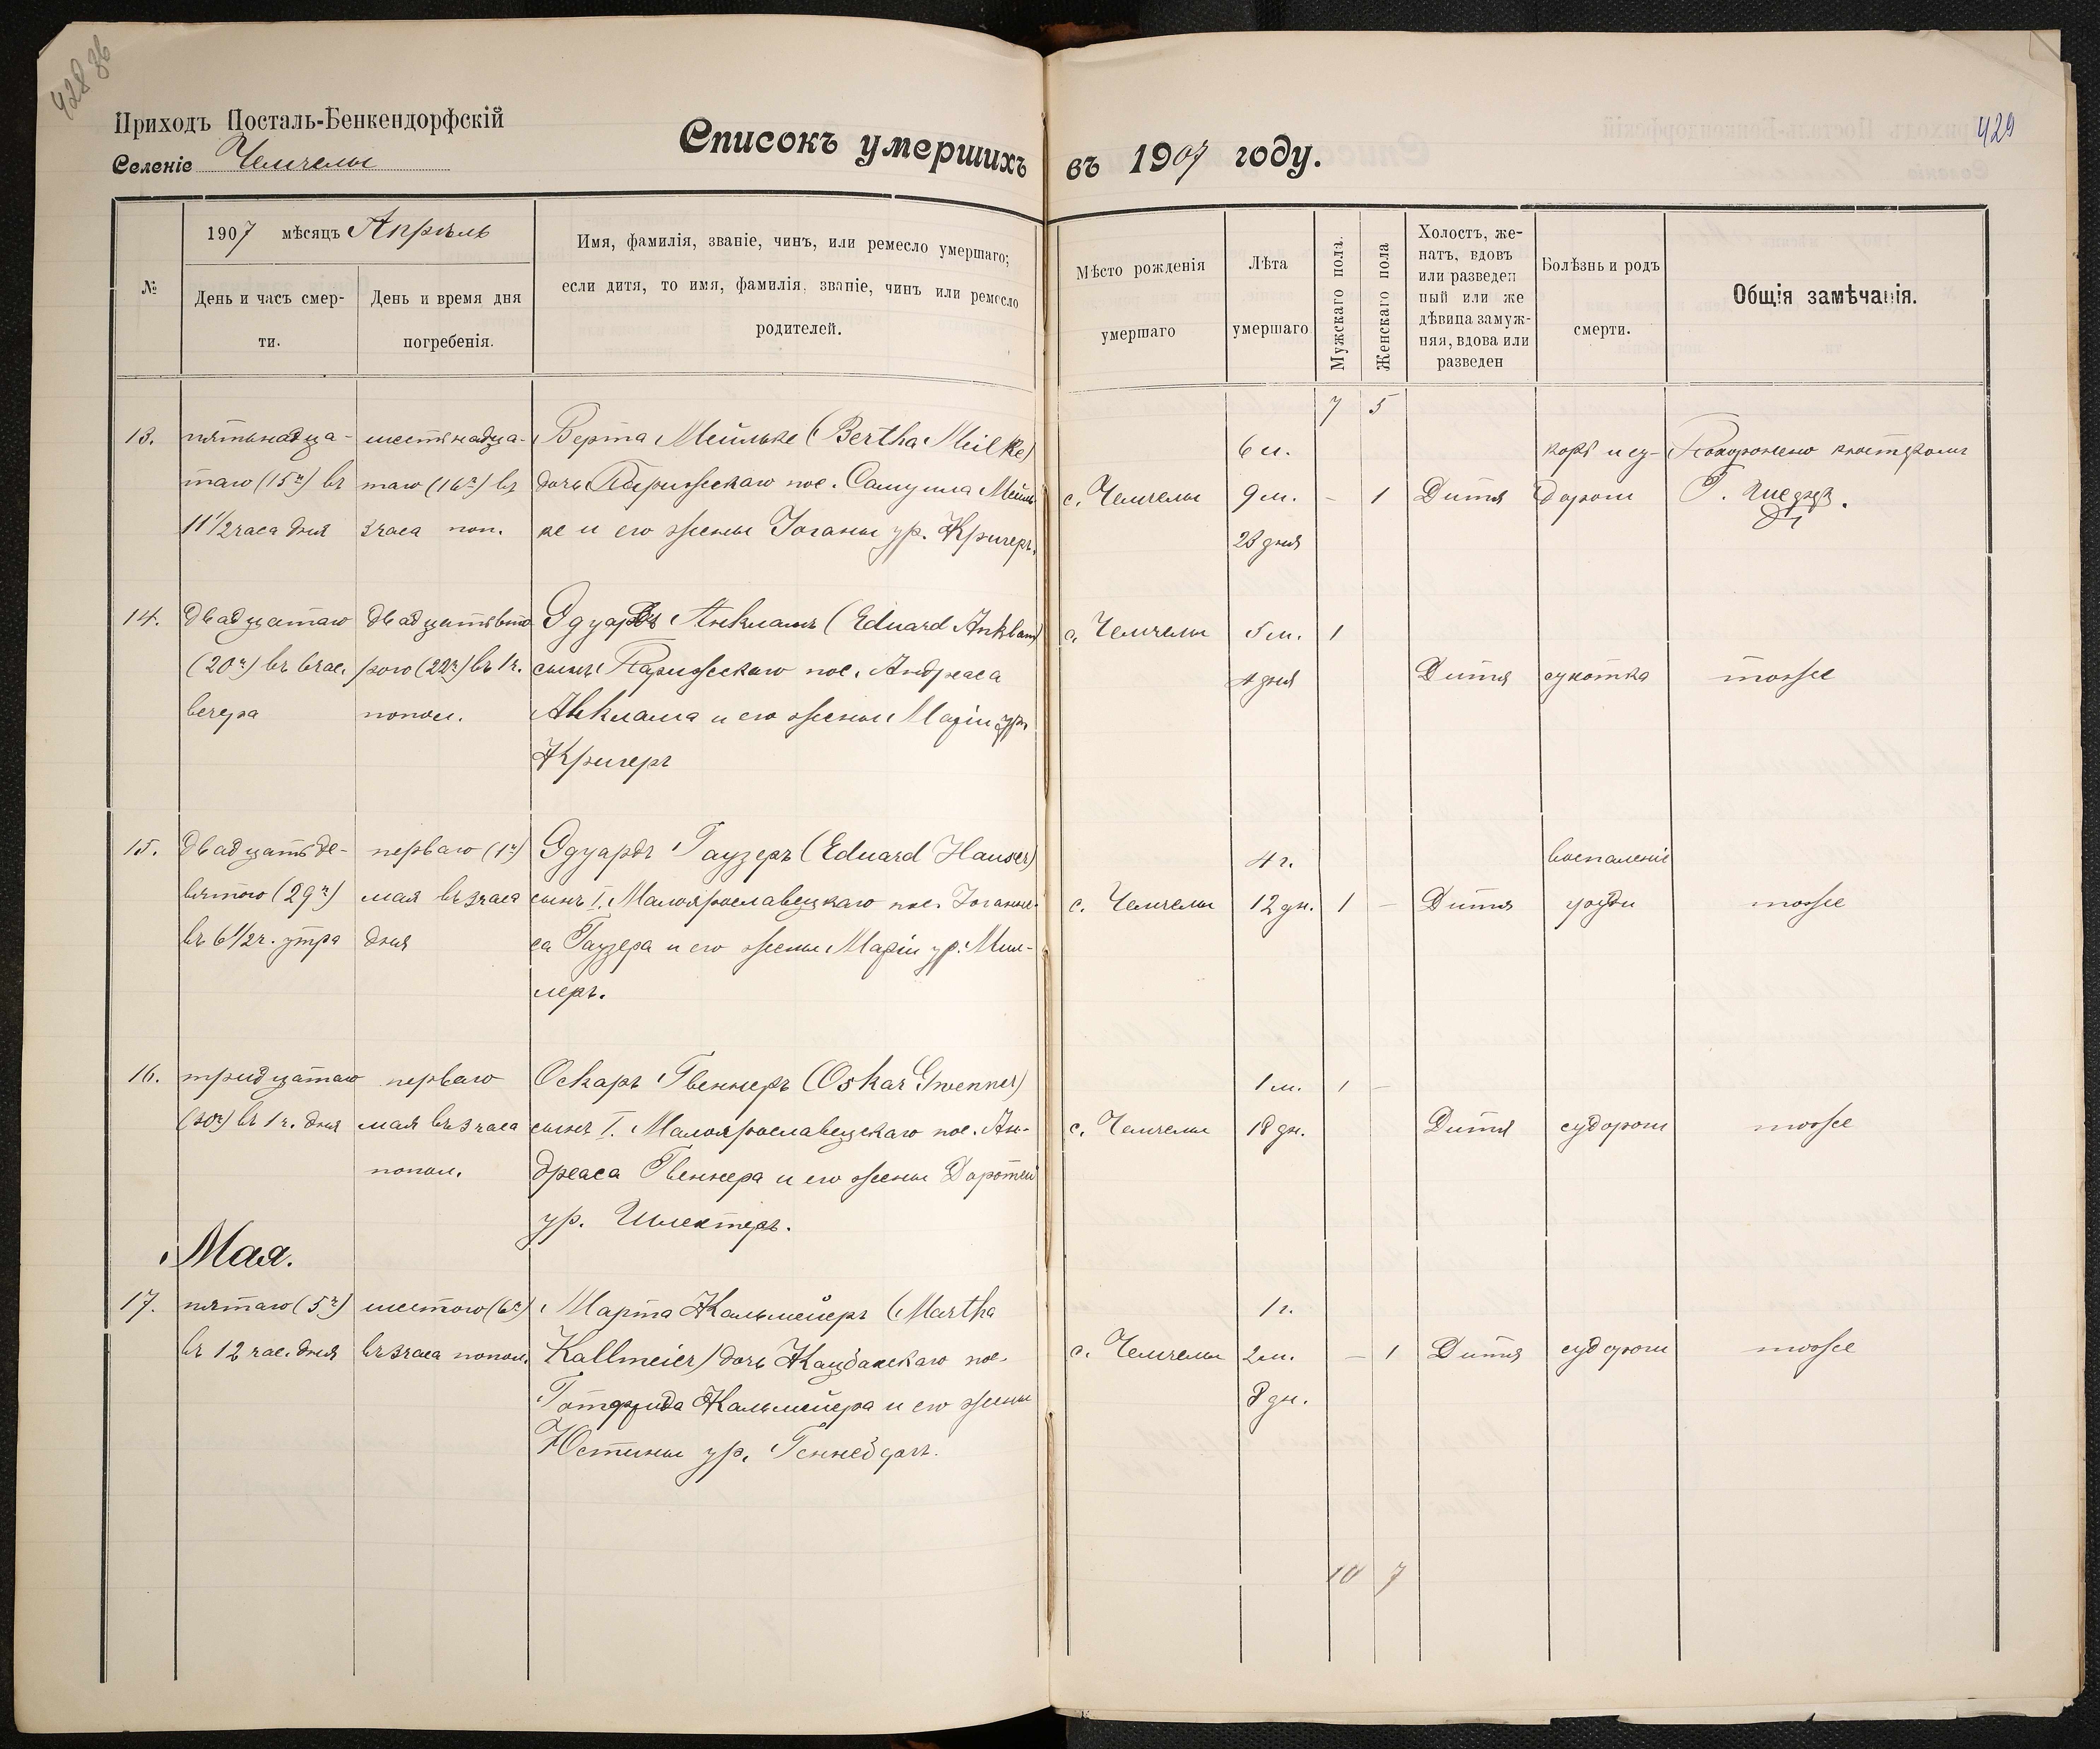 428 об
429
Приходъ Посталь-Бенкендорфскій
Селеніе Чемчелы
Списокъ умершихъ въ 1907 году.
№
1907 мѣсяцъ Апрѣль
День и часъ смер-
ти.
День и время дня
погребенія.
Имя, фамилія, званіе, чинъ, или ремесло умершаго;
если дитя, то имя, фамилія, званіе, чинъ или ремесло
родителей.
Мѣсто рожденія
умершаго
Лѣта
умершаго
Мужскаго пола.
Женскаго пола
Холостъ, же-
натъ, вдовъ
или разведен
ный или же
дѣвица замуж-
няя, вдова или
разведен
Болѣзнь и родъ
смерти.
Общія замѣчанія.
7 5
13. пятьнадца- шестьнадца- Берта Мейльке (Bertha Meilke) 6 корь и су- Похоронено кюстеромъ
таго (15го) въ таго (16го) въ дочь Парижскаго пос. Самуила Мейль с. Чемчелы 9 м. - 1 Дитя дороги Г.
11 1/2 часа дня 3 часа поп. ке и его жены Іоганны ур. Кригеръ. 23 дня
14. двадцатаго двадцатьвто Эдуардъ Анкламъ (Eduard Anklam) с. Чемчелы 5 м. 1
(20го) въ 6 час. рого (22го) въ 1 ч. сынъ Парижскаго пос. Андреаса 4 дня Дитя сухотка тоже
вечера попол. Анклама и его жены Маріи ур.
Кригеръ
15. двадцать де- перваго (1го) Эдуардъ Гаузеръ (Eduard Hauser) 4 г. воспаленіе
вятого (29го) мая въ 3 часа сынъ I. Малоярославецкаго пос. Іоганне- с. Чемчелы 12 дн. 1 - Дитя тоже
въ 6 1/2 ч. утра дня са Гаузера и его жены Маріи ур. Мил-
леръ.
16. тридцатаго перваго Оскаръ Гвеннеръ (Oskar Gwenner) 1 м. 1 -
(30го) въ 1 ч. дня мая въ 3 часа сынъ I. Малоярославецкаго пос. Ан- с. Чемчелы 18 дн. Дитя судороги тоже
попол. дреаса Гвеннера и его жены Доротеи
ур. Шлехтеръ.
Мая.
17. пятаго (5го) шестого (6го) Марта Кальмейеръ (Martha 1 г.
въ 12 час. дня въ 3 часа попол. Kallmeier) дочь Кацбахскаго пос. с. Чемчелы 2 м. - 1 Дитя судороги тоже
Готфрида Кальмейера и его жены 8 дн.
Юстины ур.
10 7